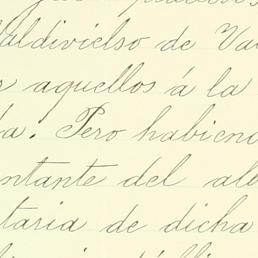 aldivielso de Va
s aquellos á la
da. Pero habiend
ntante del alb
taria de dicha